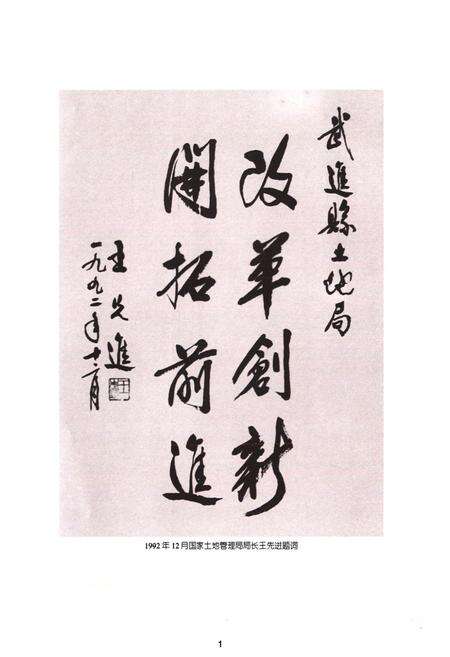 武進縣土地局
改革創新
開拓前進
王先進
一九九二年十二月
1992年12月国家土地管理局局长王先进题词
1